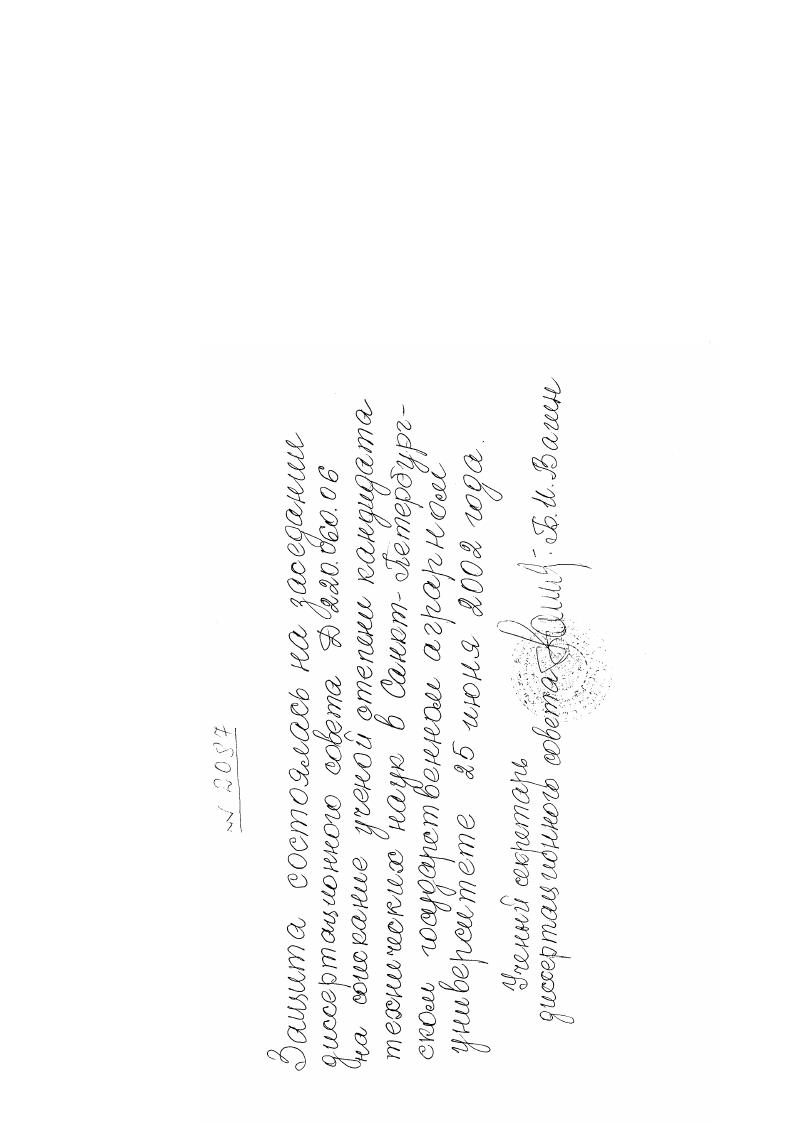 № 2087
Защита состоялась на заседании
диссертационного совета Д 220.060.06
на соискание ученой степени кандидата
технических наук в Санкт-Петербург-
ском государственном аграрном
университете 25 июня 2002 года.
Ученый секретарь
диссертационного совета Б.И. Вагин